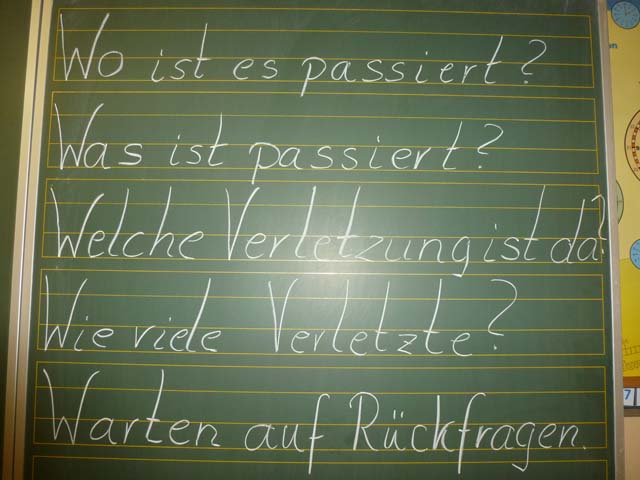 Wo ist es passiert?
Was ist passiert?
Welche Verletzung ist da?
Wie viele Verletzte?
Warten auf Rückfragen.